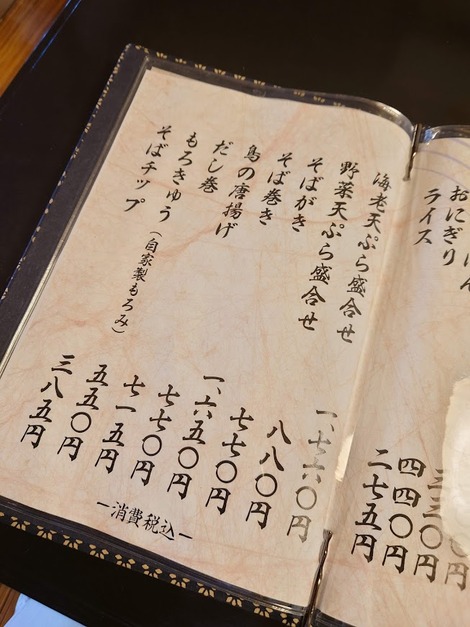 おにぎり 四四〇円
ライス 二七五円
海老天ぷら盛合せ 一、七六〇円
野菜天ぷら盛合せ 八八〇円
そばがき 七七〇円
そば巻き 一、六五〇円
鳥の唐揚げ 七七〇円
だし巻 七一五円
もろきゅう（自家製もろみ） 五五〇円
そばチップ 三八五円
－消費税込－